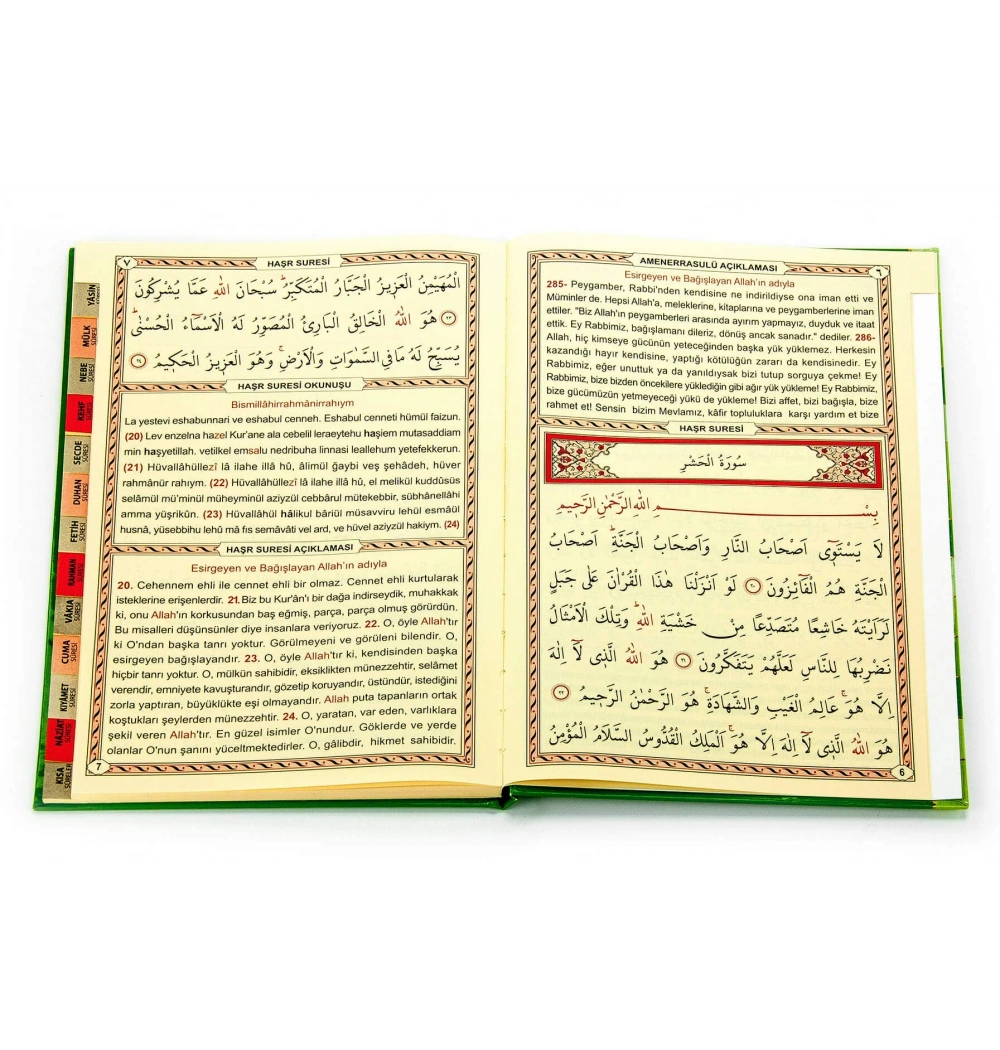 AMENERRASULÜ AÇIKLAMASI
٦
Esirgeyen ve Bağışlayan Allah'ın adıyla
285- Peygamber, Rabbi'nden kendisine ne indirildiyse ona iman etti ve
Müminler de. Hepsi Allah'a, meleklerine, kitaplarına ve peygamberlerine iman
ettiler. "Biz Allah'ın peygamberleri arasında ayırım yapmayız, duyduk ve itaat
ettik. Ey Rabbimiz, bağışlamanı dileriz, dönüş ancak sanadır." dediler. 286-
Allah, hiç kimseye gücünün yeteceğinden başka yük yüklemez. Herkesin
kazandığı hayır kendisine, yaptığı kötülüğün zararı da kendisinedir. Ey
Rabbimiz, eğer unuttuk ya da yanıldıysak bizi tutup sorguya çekme! Ey
Rabbimiz, bize bizden öncekilere yüklediğin gibi ağır yük yükleme! Ey Rabbimiz,
bize gücümüzün yetmeyeceği yükü de yükleme! Bizi affet, bizi bağışla, bize
rahmet et! Sensin bizim Mevlamız, kâfir topluluklara karşı yardım et bize
HAŞR SURESİ
سُورَةُ الْحَشْرِ
بِسْــمِ اللهِ الرَّحْمٰنِ الرَّحِيمِ
لَا يَسْتَوٓى اَصْحَابُ النَّارِ وَاَصْحَابُ الْجَنَّةِ اَصْحَابُ
الْجَنَّةِ هُمُ الْفَٓائِزُونَ ﴿٢٠﴾ لَوْ اَنْزَلْنَا هٰذَا الْقُرْاٰنَ عَلٰى جَبَلٍ
لَرَاَيْتَهُ خَاشِعًا مُتَصَدِّعًا مِنْ خَشْيَةِ اللهِ وَتِلْكَ الْاَمْثَالُ
نَضْرِبُهَا لِلنَّاسِ لَعَلَّهُمْ يَتَفَكَّرُونَ ﴿٢١﴾ هُوَ اللهُ الَّذٖى لَٓا اِلٰهَ
اِلَّا هُوَ عَالِمُ الْغَيْبِ وَالشَّهَادَةِ هُوَ الرَّحْمٰنُ الرَّحٖيمُ ﴿٢٢﴾
هُوَ اللهُ الَّذٖى لَٓا اِلٰهَ اِلَّا هُوَ اَلْمَلِكُ الْقُدُّوسُ السَّلَامُ الْمُؤْمِنُ
6
HAŞR SURESİ
٧
الْمُهَيْمِنُ الْعَزٖيزُ الْجَبَّارُ الْمُتَكَبِّرُ سُبْحَانَ اللهِ عَمَّا يُشْرِكُونَ
﴿٢٣﴾ هُوَ اللهُ الْخَالِقُ الْبَارِئُ الْمُصَوِّرُ لَهُ الْاَسْمَٓاءُ الْحُسْنٰى
يُسَبِّحُ لَهُ مَا فِى السَّمٰوَاتِ وَالْاَرْضِ وَهُوَ الْعَزٖيزُ الْحَكٖيمُ ﴿٢٤﴾
HAŞR SURESİ OKUNUŞU
Bismillâhirrahmânirrahıym
La yestevi eshabunnari ve eshabul cenneh. Eshabul cenneti hümül faizun.
(20) Lev enzelna hazel Kur'ane ala cebelil leraeytehu haşiem mutasaddiam
min haşyetillah. vetilkel emsalu nedribuha linnasi leallehum yetefekkerun.
(21) Hüvallâhüllezî lâ ilahe illâ hû, âlimül ğaybi veş şehâdeh, hüver
rahmânür rahıym. (22) Hüvallâhüllezî lâ ilahe illâ hû, el melikül kuddûsüs
selâmül mü'minül müheyminül aziyzül cebbârul mütekebbir, sübhânellâhi
amma yüşrikûn. (23) Hüvallâhul hâlikul bâriül müsavviru lehul esmâül
husnâ, yüsebbihu lehû mâ fıs semâvâti vel ard, ve hüvel aziyzül hakiym. (24)
HAŞR SURESİ AÇIKLAMASI
Esirgeyen ve Bağışlayan Allah'ın adıyla
20. Cehennem ehli ile cennet ehli bir olmaz. Cennet ehli kurtularak
isteklerine erişenlerdir. 21. Biz bu Kur'ân'ı bir dağa indirseydik, muhakkak
ki, onu Allah'ın korkusundan baş eğmiş, parça, parça olmuş görürdün.
Bu misalleri düşünsünler diye insanlara veriyoruz. 22. O, öyle Allah'tır
ki O'ndan başka tanrı yoktur. Görülmeyeni ve görüleni bilendir. O,
esirgeyen bağışlayandır. 23. O, öyle Allah'tır ki, kendisinden başka
hiçbir tanrı yoktur. O, mülkün sahibidir, eksiklikten münezzehtir, selâmet
verendir, emniyete kavuşturandır, gözetip koruyandır, üstündür, istediğini
zorla yaptıran, büyüklükte eşi olmayandır. Allah puta tapanların ortak
koştukları şeylerden münezzehtir. 24. O, yaratan, var eden, varlıklara
şekil veren Allah'tır. En güzel isimler O'nundur. Göklerde ve yerde
olanlar O'nun şanını yüceltmektedirler. O, gâlibdir, hikmet sahibidir.
7
YÂSİN
SÛRESİ
MÜLK
SÛRESİ
NEBE
SÛRESİ
KEHF
SÛRESİ
SECDE
SÛRESİ
DUHAN
SÛRESİ
FETİH
SÛRESİ
RAHMAN
SÛRESİ
VÂKIA
SÛRESİ
CUMA
SÛRESİ
KIYÂMET
SÛRESİ
NÂZİAT
SÛRESİ
KISA
SÛRELER